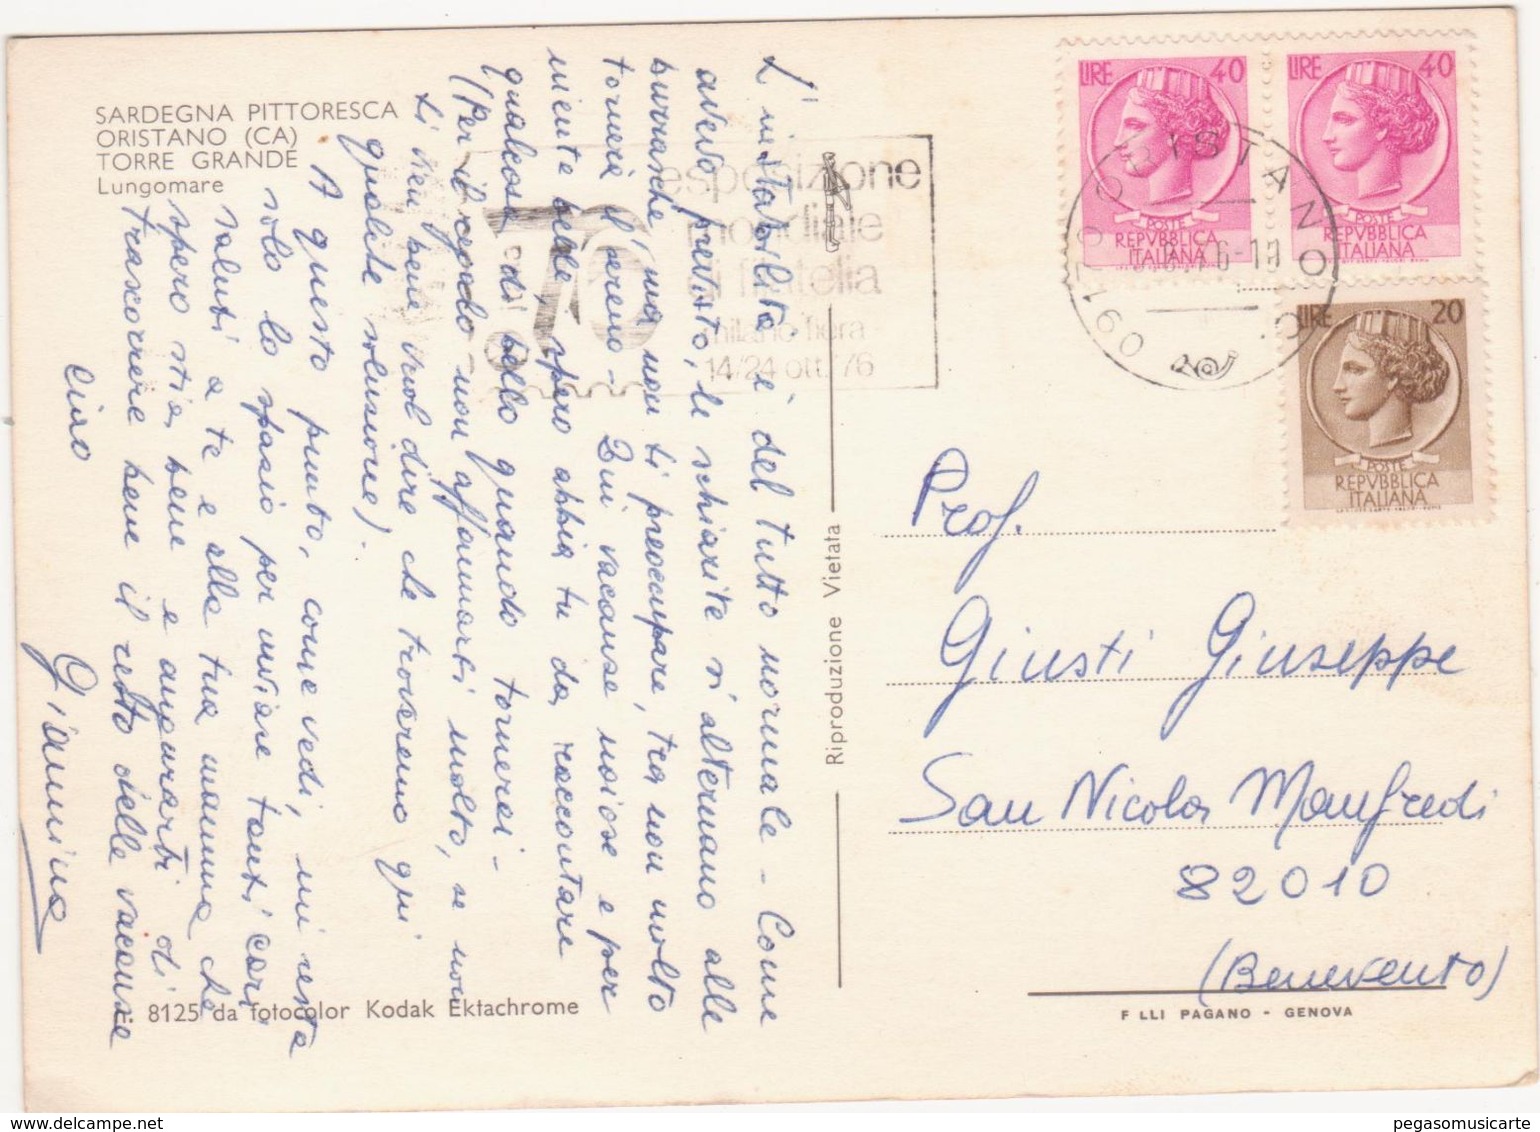 SARDEGNA PITTORESCA
ORISTANO (CA)
TORRE GRANDE
Lungomare
L'instabilità è del tutto normale - Come
avevo predetto, le schiarite si alternano alle
burrasche, ma non ti preoccupare, tra non molto
tornerà il sereno - Qui vacanze noiose e per
niente belle, spero abbia tu da raccontare
qualcosa di bello quando tornerai -
(Per il regalo non affannarti molto, se non
ti vien bene vuol dire che troveremo qui
qualche soluzione).
A questo punto, come vedi, mi resta
solo lo spazio per inviare tanti cari
saluti a te e alla tua mamma che
spero stia bene e augurarti di
trascorrere bene il resto delle vacanze
Ciao
Giannina
n. 8125 da fotocolor Kodak Ektachrome
Riproduzione Vietata
esposizione
mondiale
di filatelia
milano fiera
14/24 ott. '76
76
LIRE 40
POSTE
REPVBBLICA
ITALIANA
LIRE 40
POSTE
REPVBBLICA
ITALIANA
LIRE 20
POSTE
REPVBBLICA
ITALIANA
ORISTANO
09100
Prof.
Giusti Giuseppe
San Nicola Manfredi
82010
(Benevento)
F LLI PAGANO - GENOVA
www.delcampe.net
pegasomusicarte